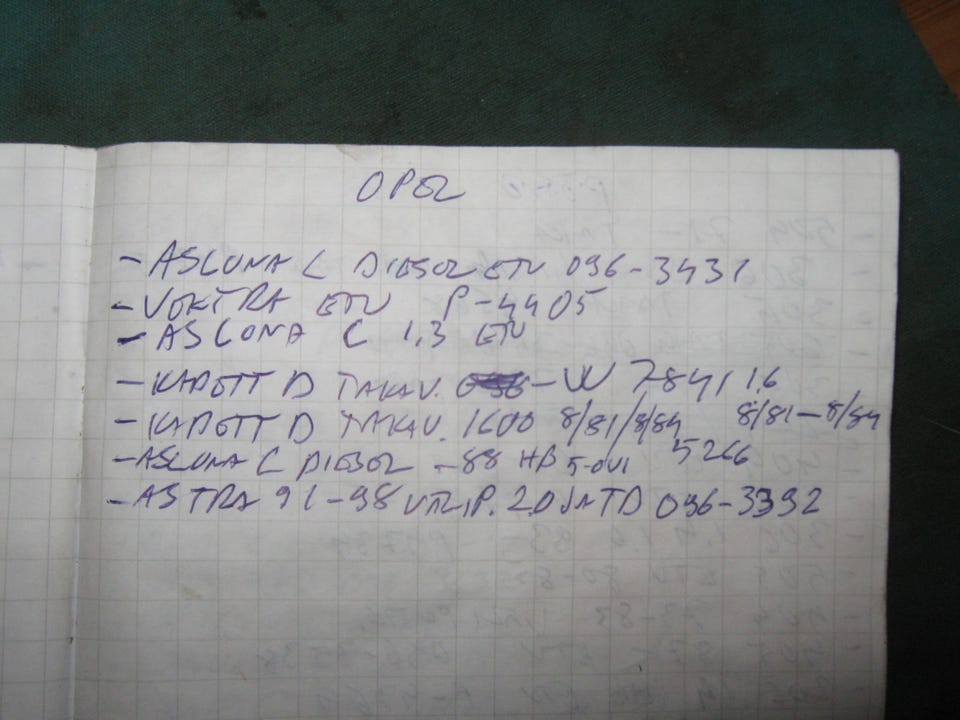 OPEL
- ASCONA C DIESEL ETU 096-3431
- VEKTRA ETU P-4405
- ASCONA C 1,3 ETU
- KADETT D TAKAV. - 7841 1.6
- KADETT D TAKAV. 1600 8/81/8/84 8/81-8/84
- ASCONA C DIESEL -88 HB 5-OVI 5266
- ASTRA 91-98 2.0 096-3392